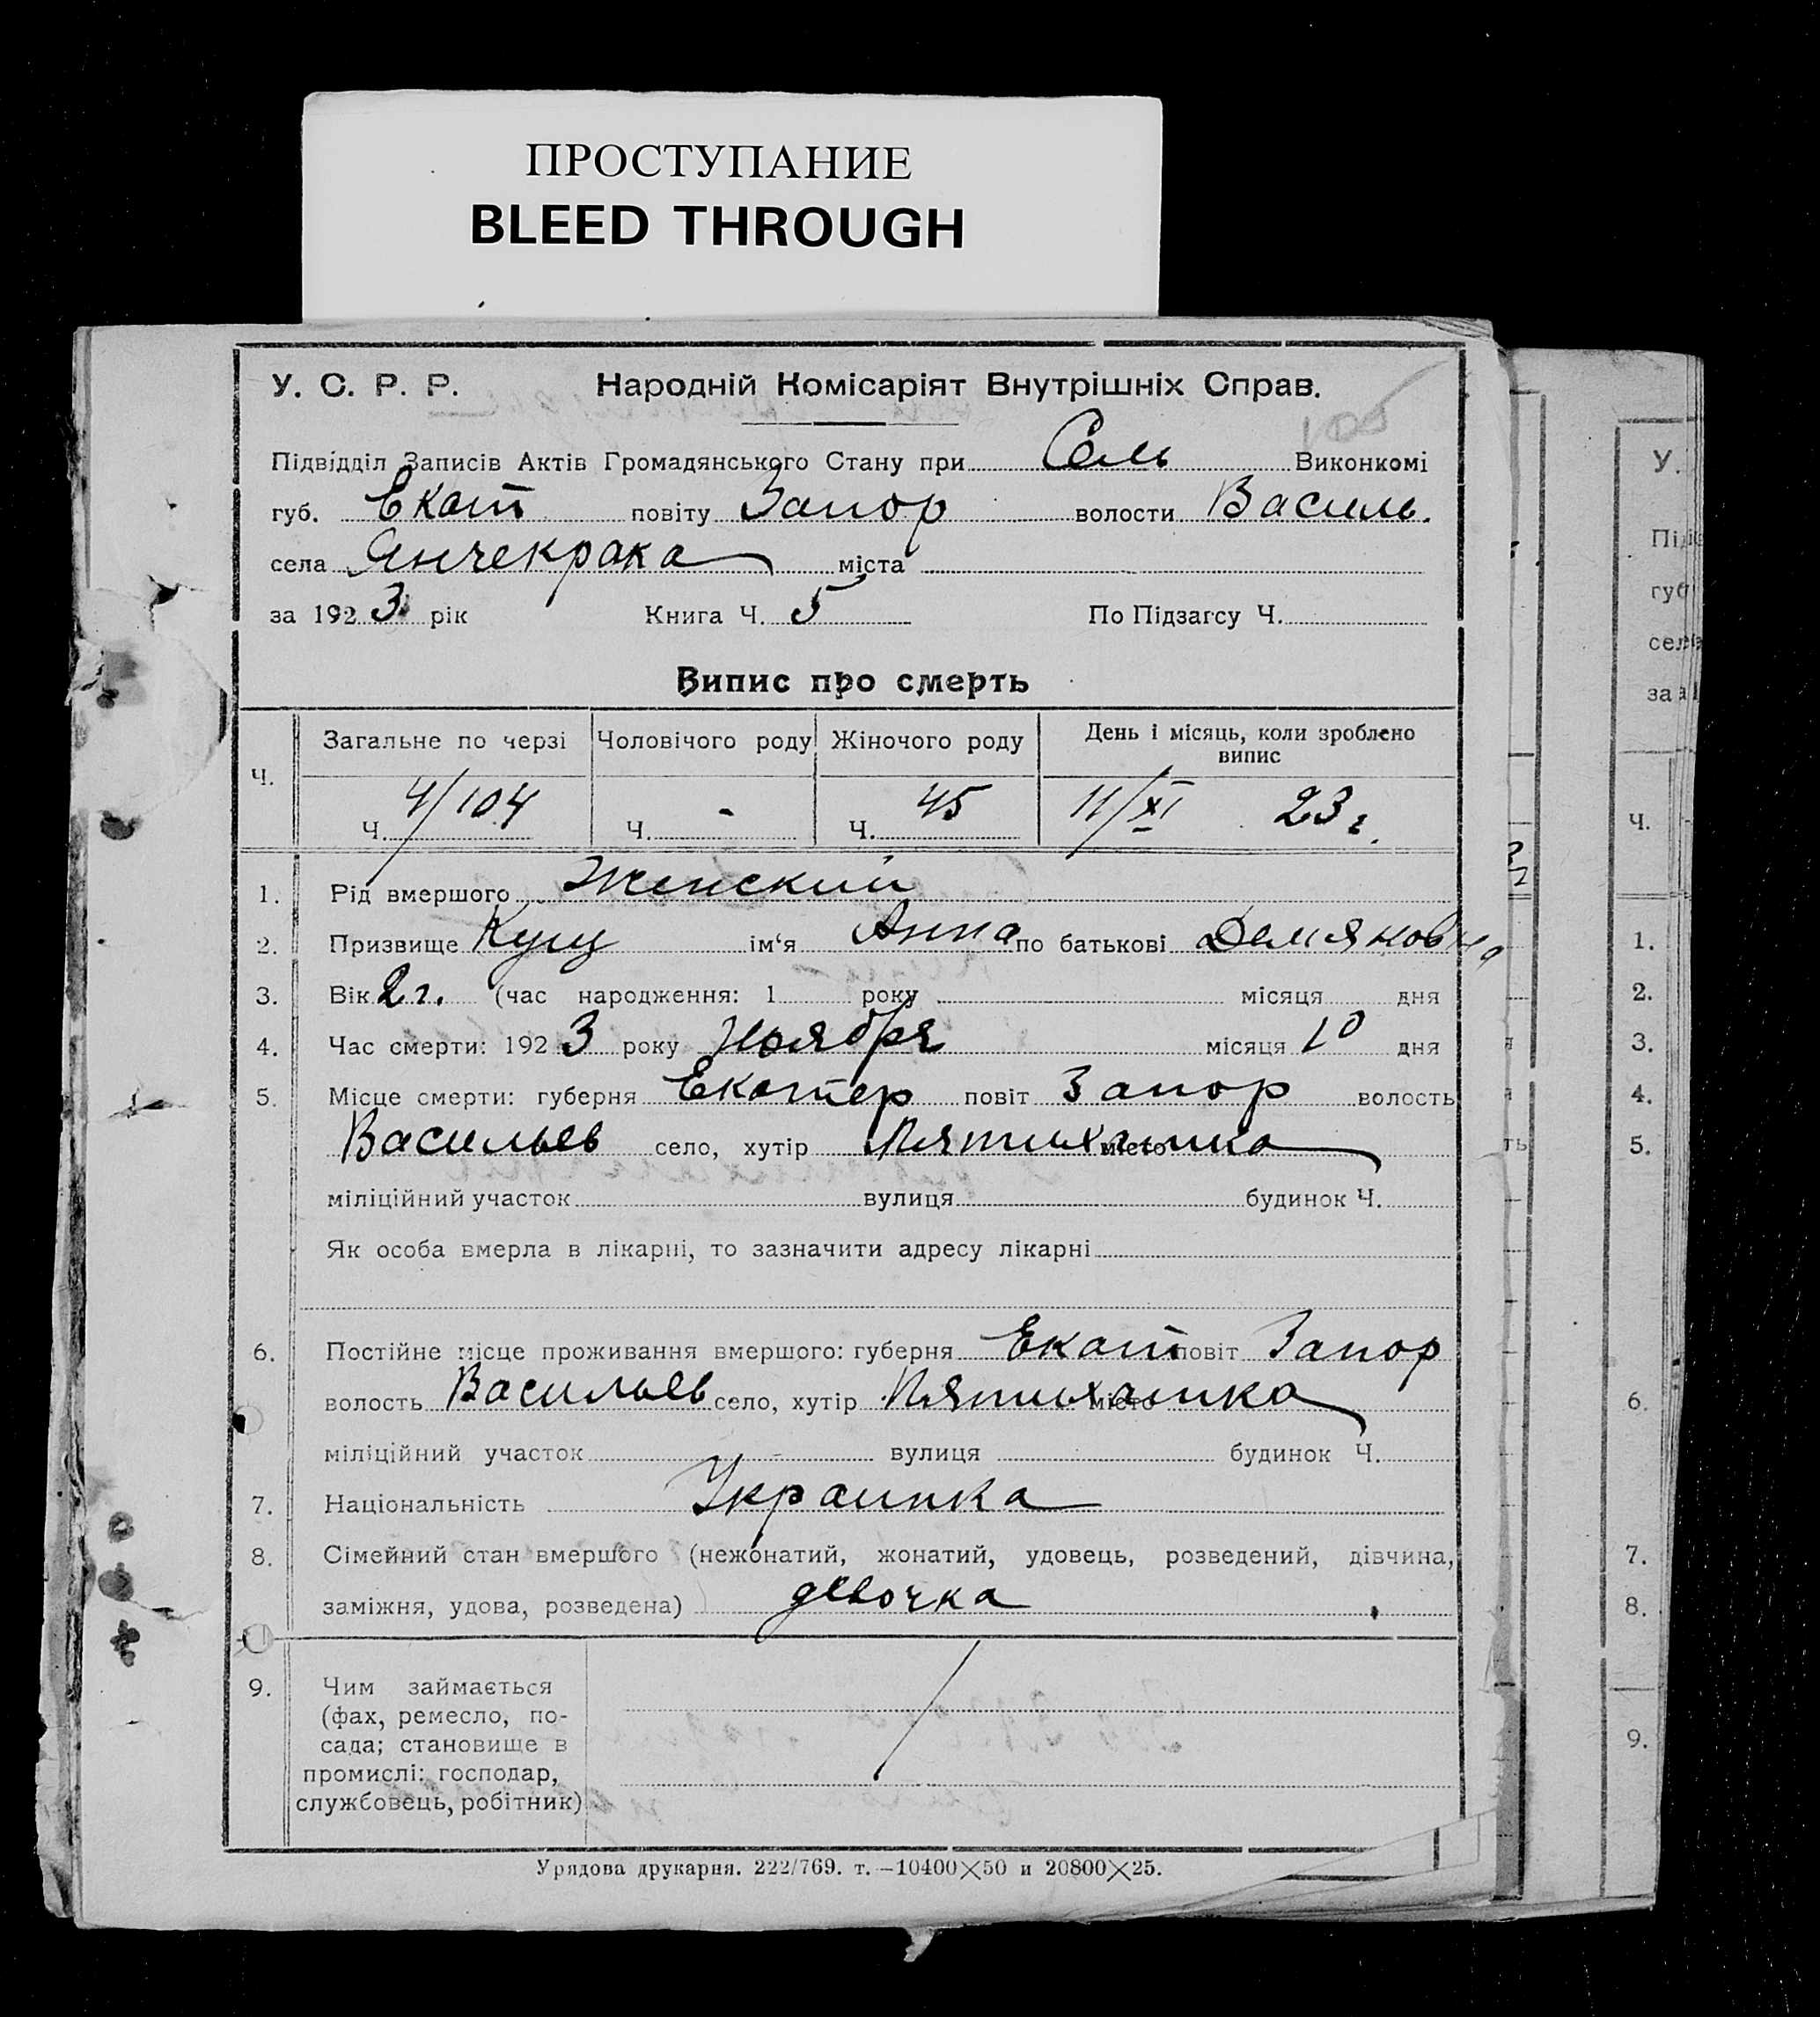 ПРОСТУПАНИЕ
BLEED THROUGH
У. С. Р. Р. Народній Комісаріят Внутрішніх Справ.
105
Підвідділ Записів Актів Громадянського Стану при Сель Виконкомі
губ. Екат повіту Запор волости Василь.
села Янчекрака міста
за 1923 рік Книга Ч. 5 По Підзагсу Ч.
Випис про смерть
Ч. Загальне по черзі Чоловічого роду Жіночого роду День і місяць, коли зроблено випис
Ч. 4/104 Ч. - Ч. 45 11/XI 23 г.
1. Рід вмершого Женский
2. Призвище Кущ ім‘я Анна по батькові Демяновна
3. Вік 2 г. (час народження: 1 року місяця дня
4. Час смерти: 1923 року Ноября місяця 10 дня
5. Місце смерти: губерня Екатер повіт Запор волость
Васильев село, хутір Пятихатка місто
міліційний участок вулиця будинок Ч.
Як особа вмерла в лікарні, то зазначити адресу лікарні
6. Постійне місце проживання вмершого: губерня Екат повіт Запор
волость Васильев село, хутір Пятихатка місто
міліційний участок вулиця будинок Ч.
7. Національність Украинка
8. Сімейний стан вмершого (нежонатий, жонатий, удовець, розведений, дівчина,
заміжня, удова, розведена) девочка
9. Чим займається
(фах, ремесло, по-
сада; становище в
промислі: господар,
службовець, робітник)
Урядова друкарня. 222/769. т.—10400×50 и 20800×25.
У.
Під
губ
сел
за 1
Ч.
1.
2.
3.
4.
5.
6.
7.
8.
9.